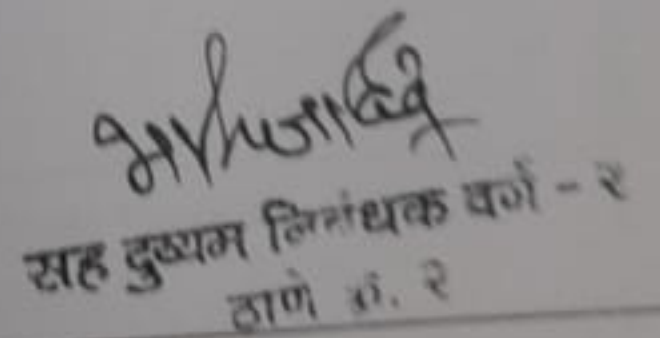 सह दुय्यम निबंधक वर्ग - २
ठाणे क्रं. २